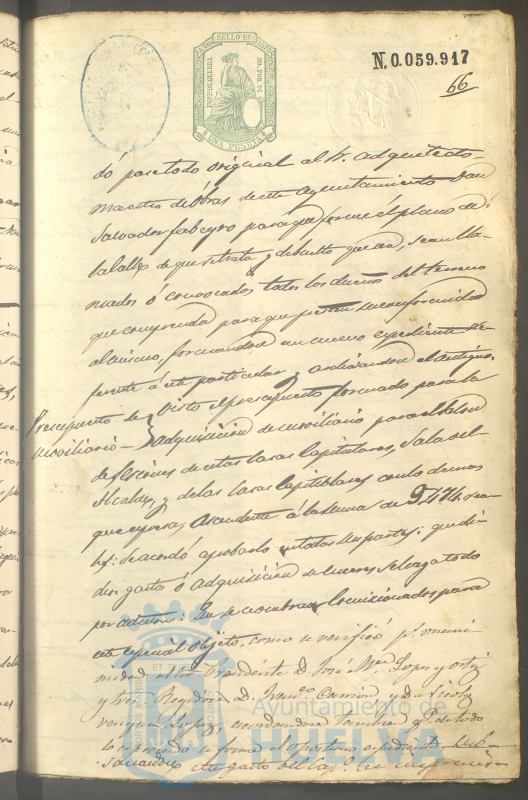 SELLO 10º
IMPto DE GUERRA
50 POR %
UNA PESETA
N.0.059.917
66
dó pase todo original al Sr. arquitecto
maestro de obras de este Ayuntamiento Don
Salvador para que forme el plano de
la calle de que se trata y devuelto que sea, sean lla-
mados ó convocados todos los dueños del terreno
que comprenda para que presten su conformidad
al mismo, formandose un nuevo expediente re-
ferente á este particular y archivandose el antiguo.
Presupuesto de Visto el presupuesto formado para la
moviliario adquisición de moviliario para el Salon
de Sesiones de estas Casas Capitulares, Sala del
Alcalde, y de las Casas Capitulares con lo demas
que expresa, ascendente á la suma de 9.474 rea-
les: se acordó aprobarlo en todas sus partes: que di-
cho gasto ó adquisición de enseres se haga todo
por admon: Que se nombran Comisionados para
este especial objeto, como se verificó pr. unani-
midad al Sr. Presidente D. José Ma. Lopez y Ortiz
y Sres. Regidores D. Franco. Carrion y D. Nicolas
Vazquez Lopez, acordandose tambien qe. de todo
lo expresado se forme el oportuno expediente, sub-
sanandose este gasto del Capo. de imprevis-
Ayuntamiento de
HUELVA